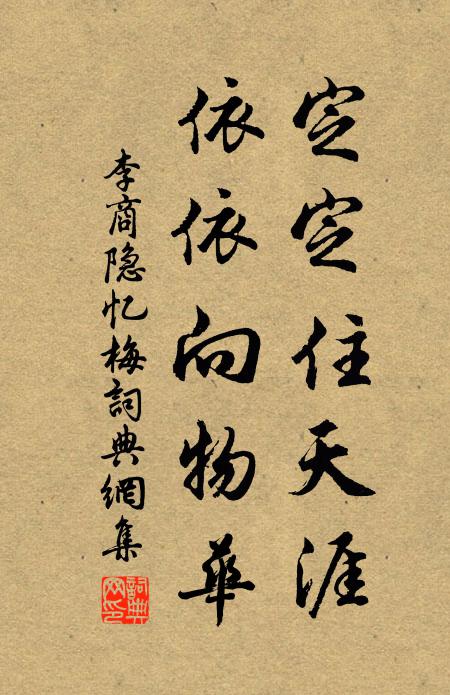 定定住天涯
依依向物華
李商隐忆梅詞典網集
詞典网印